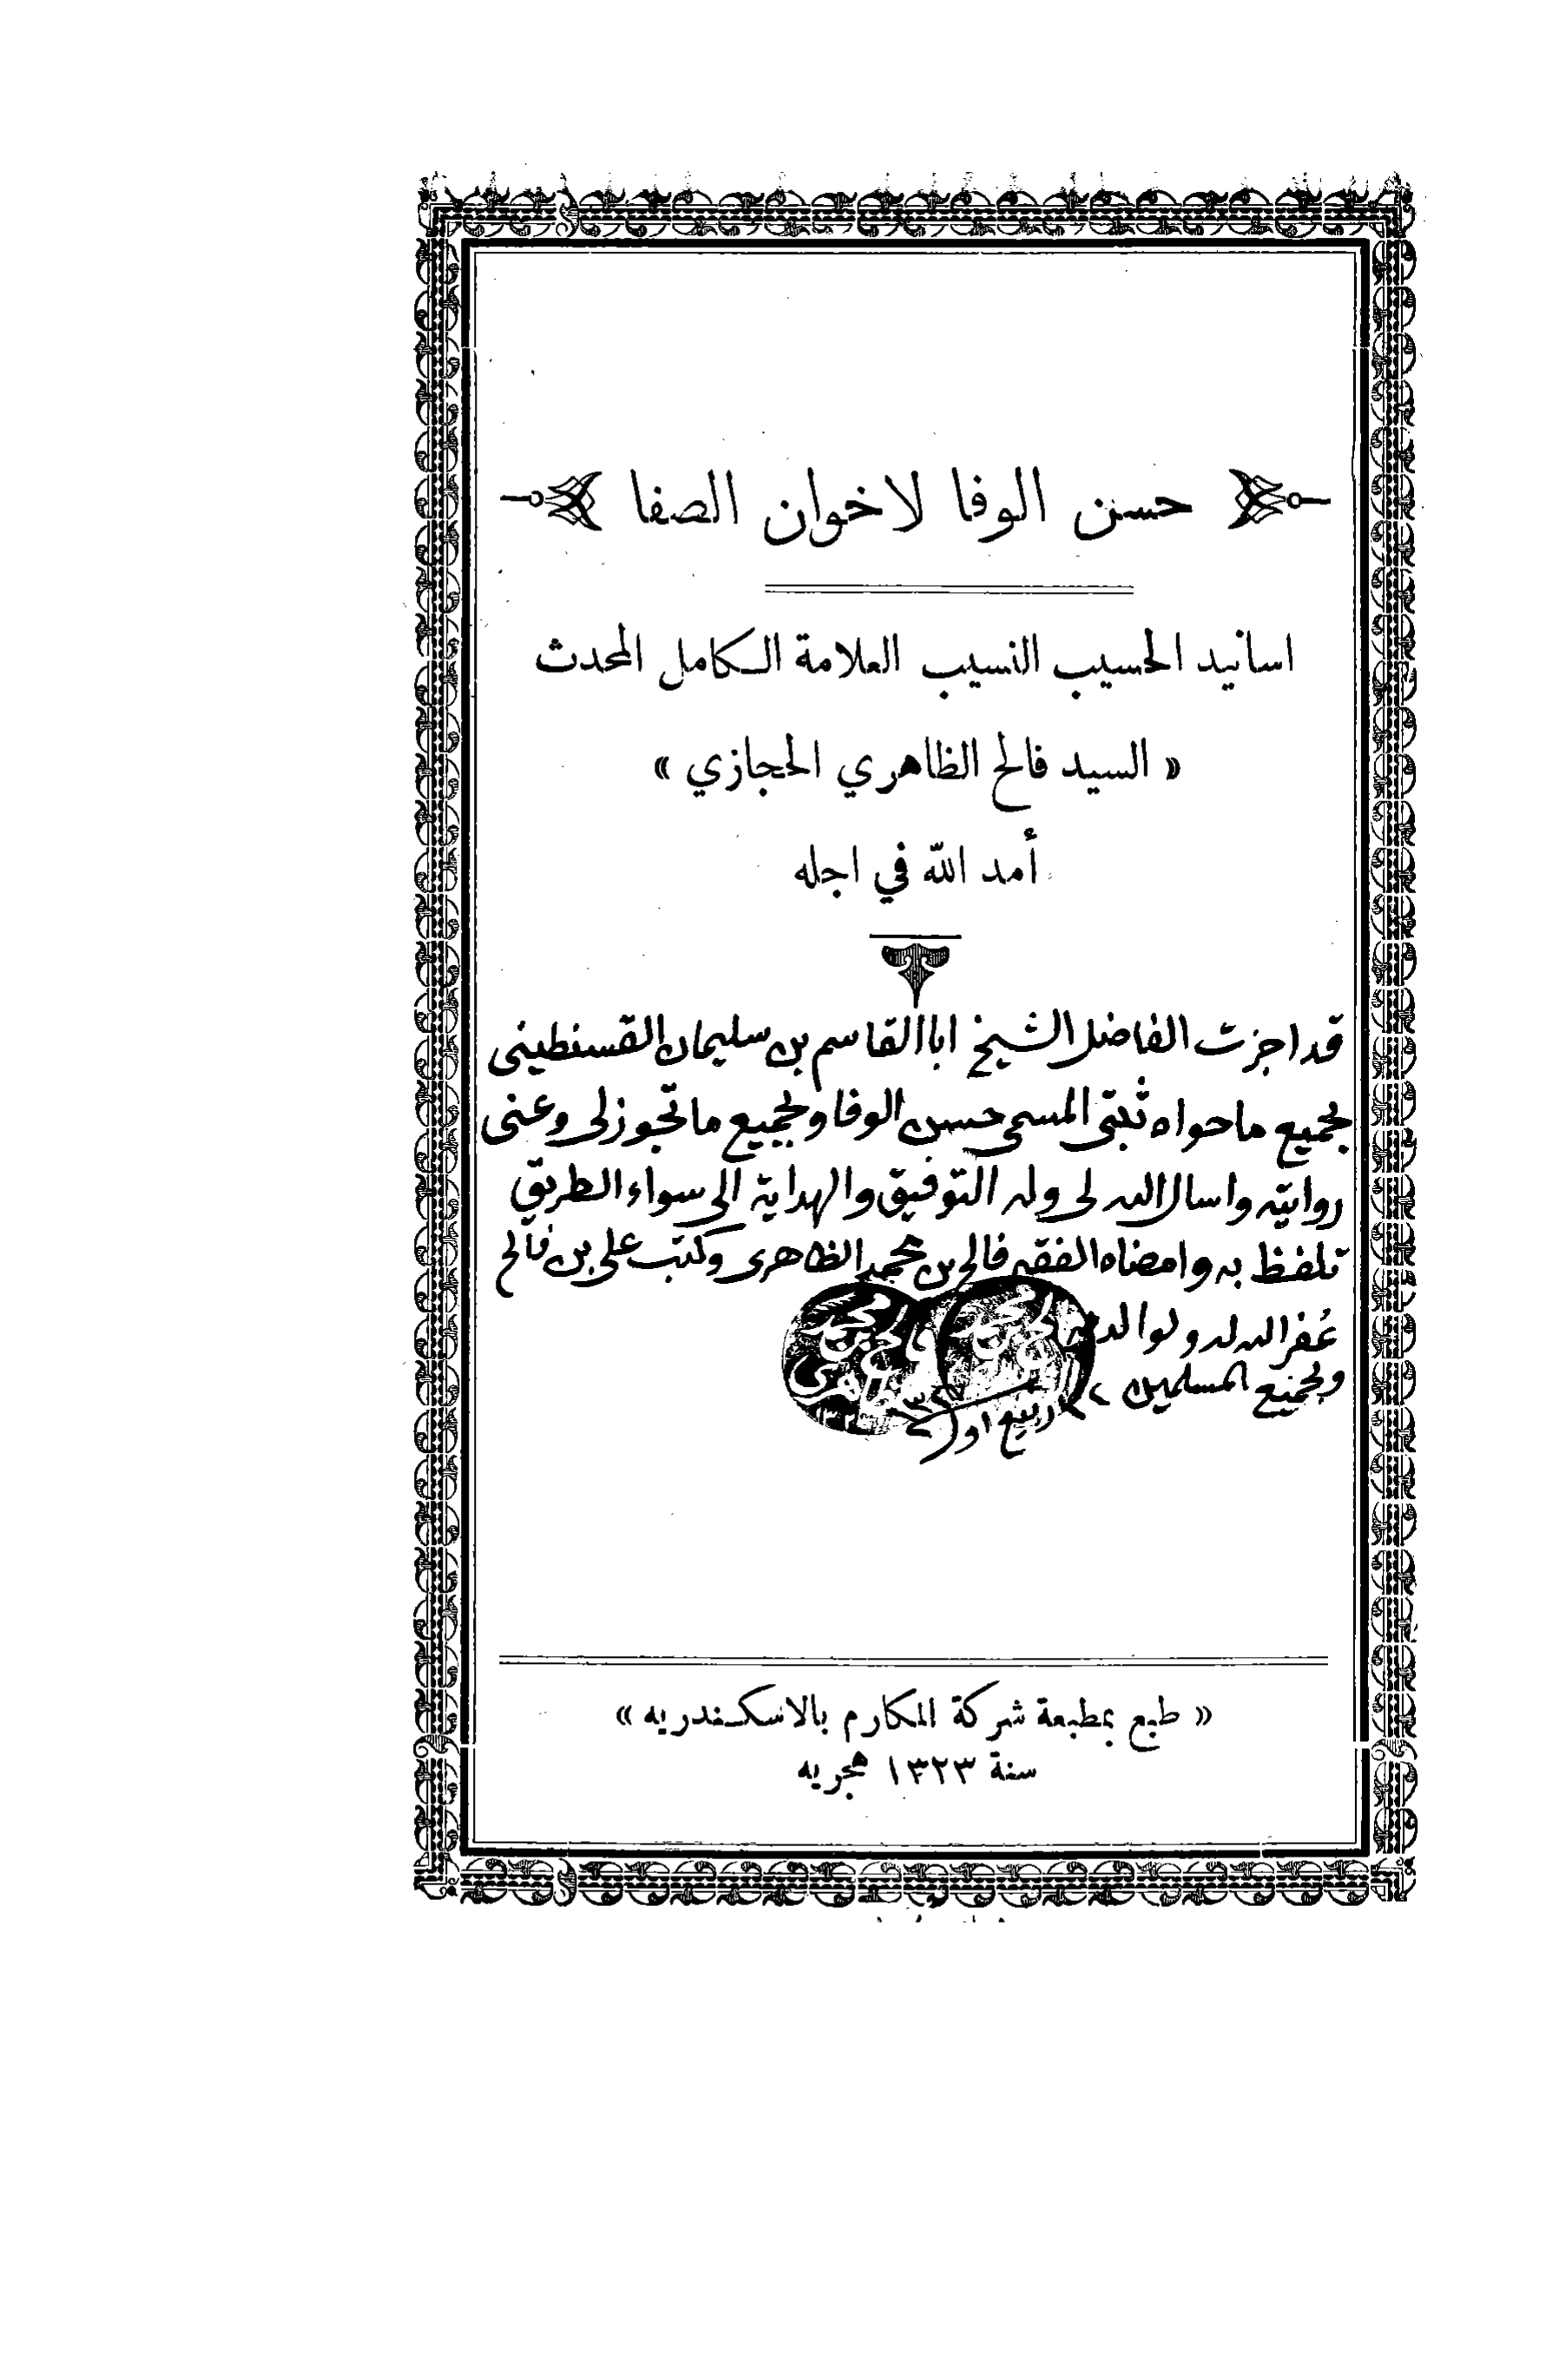 حسن الوفا لاخوان الصفا
اسانيد الحسيب النسيب العلامة الكامل المحدث
« السيد فالح الظاهري الحجازي »
أمد الله في اجله
قد اجزت الفاضل الشيخ ابا القاسم بن سليمان القسنطيني
بجميع ما حواه ثبتي المسمى حسن الوفا وبجميع ما تجوز لي وعني
روايته واسال الله لي وله التوفيق والهداية الى سواء الطريق
تلفظ به وامضاه الفقير فالح بن محمد الظاهري وكتب علي بن فالح
غفر الله له ولوالديه
ولجميع المسلمين ربيع اول
« طبع بمطبعة شركة المكارم بالاسكندريه »
سنة ١٣٢٣ هجريه